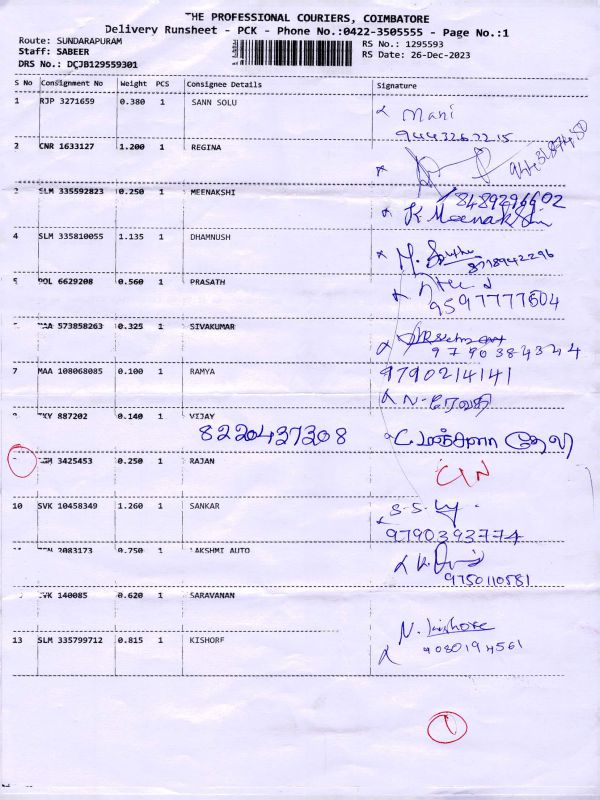 THE PROFESSIONAL COURIERS, COIMBATORE
Delivery Runsheet - PCK - Phone No.:0422-3505555 - Page No.:1
Route: SUNDARAPURAM
Staff: SABEER
DRS No.: DCJB129559301
RS No.: 1295593
RS Date: 26-Dec-2023
S No Consignment No Weight PCS Consignee Details Signature
1 RJP 3271659 0.380 1 SANN SOLU
Mani
9443267215
2 CNR 1633127 1.200 1 REGINA
SLM 335592823 0.250 1 MEENAKSHI
8489296602
K. Meenakshi
4 SLM 335810055 1.135 1 DHAMNUSH
8778942296
5 POL 6629208 0.560 1 PRASATH
9597777604
MAA 573858263 0.325 1 SIVAKUMAR
9790384344
7 MAA 108068085 0.100 1 RAMYA
9790214141
N. ரேவதி
887202 0.140 1 VIJAY
8220437308
C. மஞ்சுளா தேவி
3425453 0.250 1 RAJAN
C/N
10 SVK 10458349 1.260 1 SANKAR
9790393774
2083173 0.750 1 LAKSHMI AUTO
9750110581
140085 0.620 1 SARAVANAN
13 SLM 335799712 0.815 1 KISHORE
N. kishore
9080194561
1